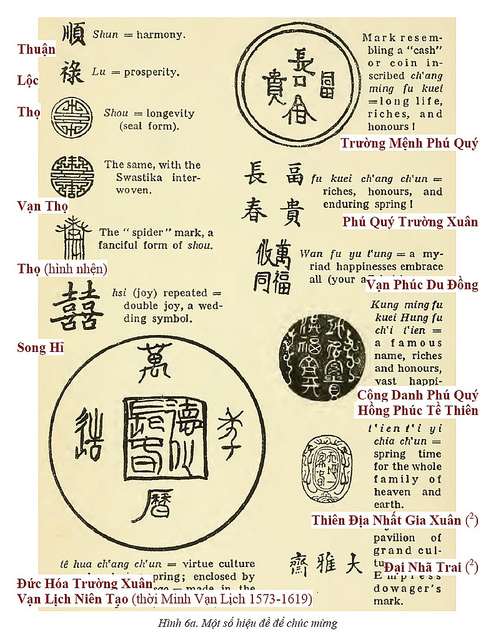 順 Shun = harmony.
Thuận
祿 Lu = prosperity.
Lộc
Shou = longevity
(seal form).
Thọ
The same, with the
Swastika inter-
woven.
Vạn Thọ
The "spider" mark, a
fanciful form of shou.
Thọ (hình nhện)
囍 hsi (joy) repeated =
double joy, a wed-
ding symbol.
Song Hỉ
萬
德化
長春
年
造
曆
tê hua ch'ang ch'un = virtue culture
pring; enclosed by
made in the
Đức Hóa Trường Xuân
Vạn Lịch Niên Tạo (thời Minh Vạn Lịch 1573-1619)
長命富貴
Mark resem-
bling a "cash"
or coin in-
scribed ch'ang
ming fu kuei
= long life,
riches, and
honours !
Trường Mệnh Phú Quý
富貴
長春
fu kuei ch'ang ch'un =
riches, honours, and
enduring spring !
Phú Quý Trường Xuân
萬福
攸同
Wan fu yu t'ung = a my-
riad happinesses embrace
all (your a
Vạn Phúc Du Đồng
Kung ming fu
kuei Hung fu
ch'i t'ien =
a famous
name, riches
and honours,
vast happi-
Công Danh Phú Quý
Hồng Phúc Tề Thiên
t'ien ti yi
chia ch'un =
spring time
for the whole
family of
heaven and
earth.
Thiên Địa Nhất Gia Xuân (2)
齋雅大
pavilion of
grand cul-
tu
Empress
dowager's
mark.
Đại Nhã Trai (2)
Hình 6a. Một số hiệu đề để chúc mừng